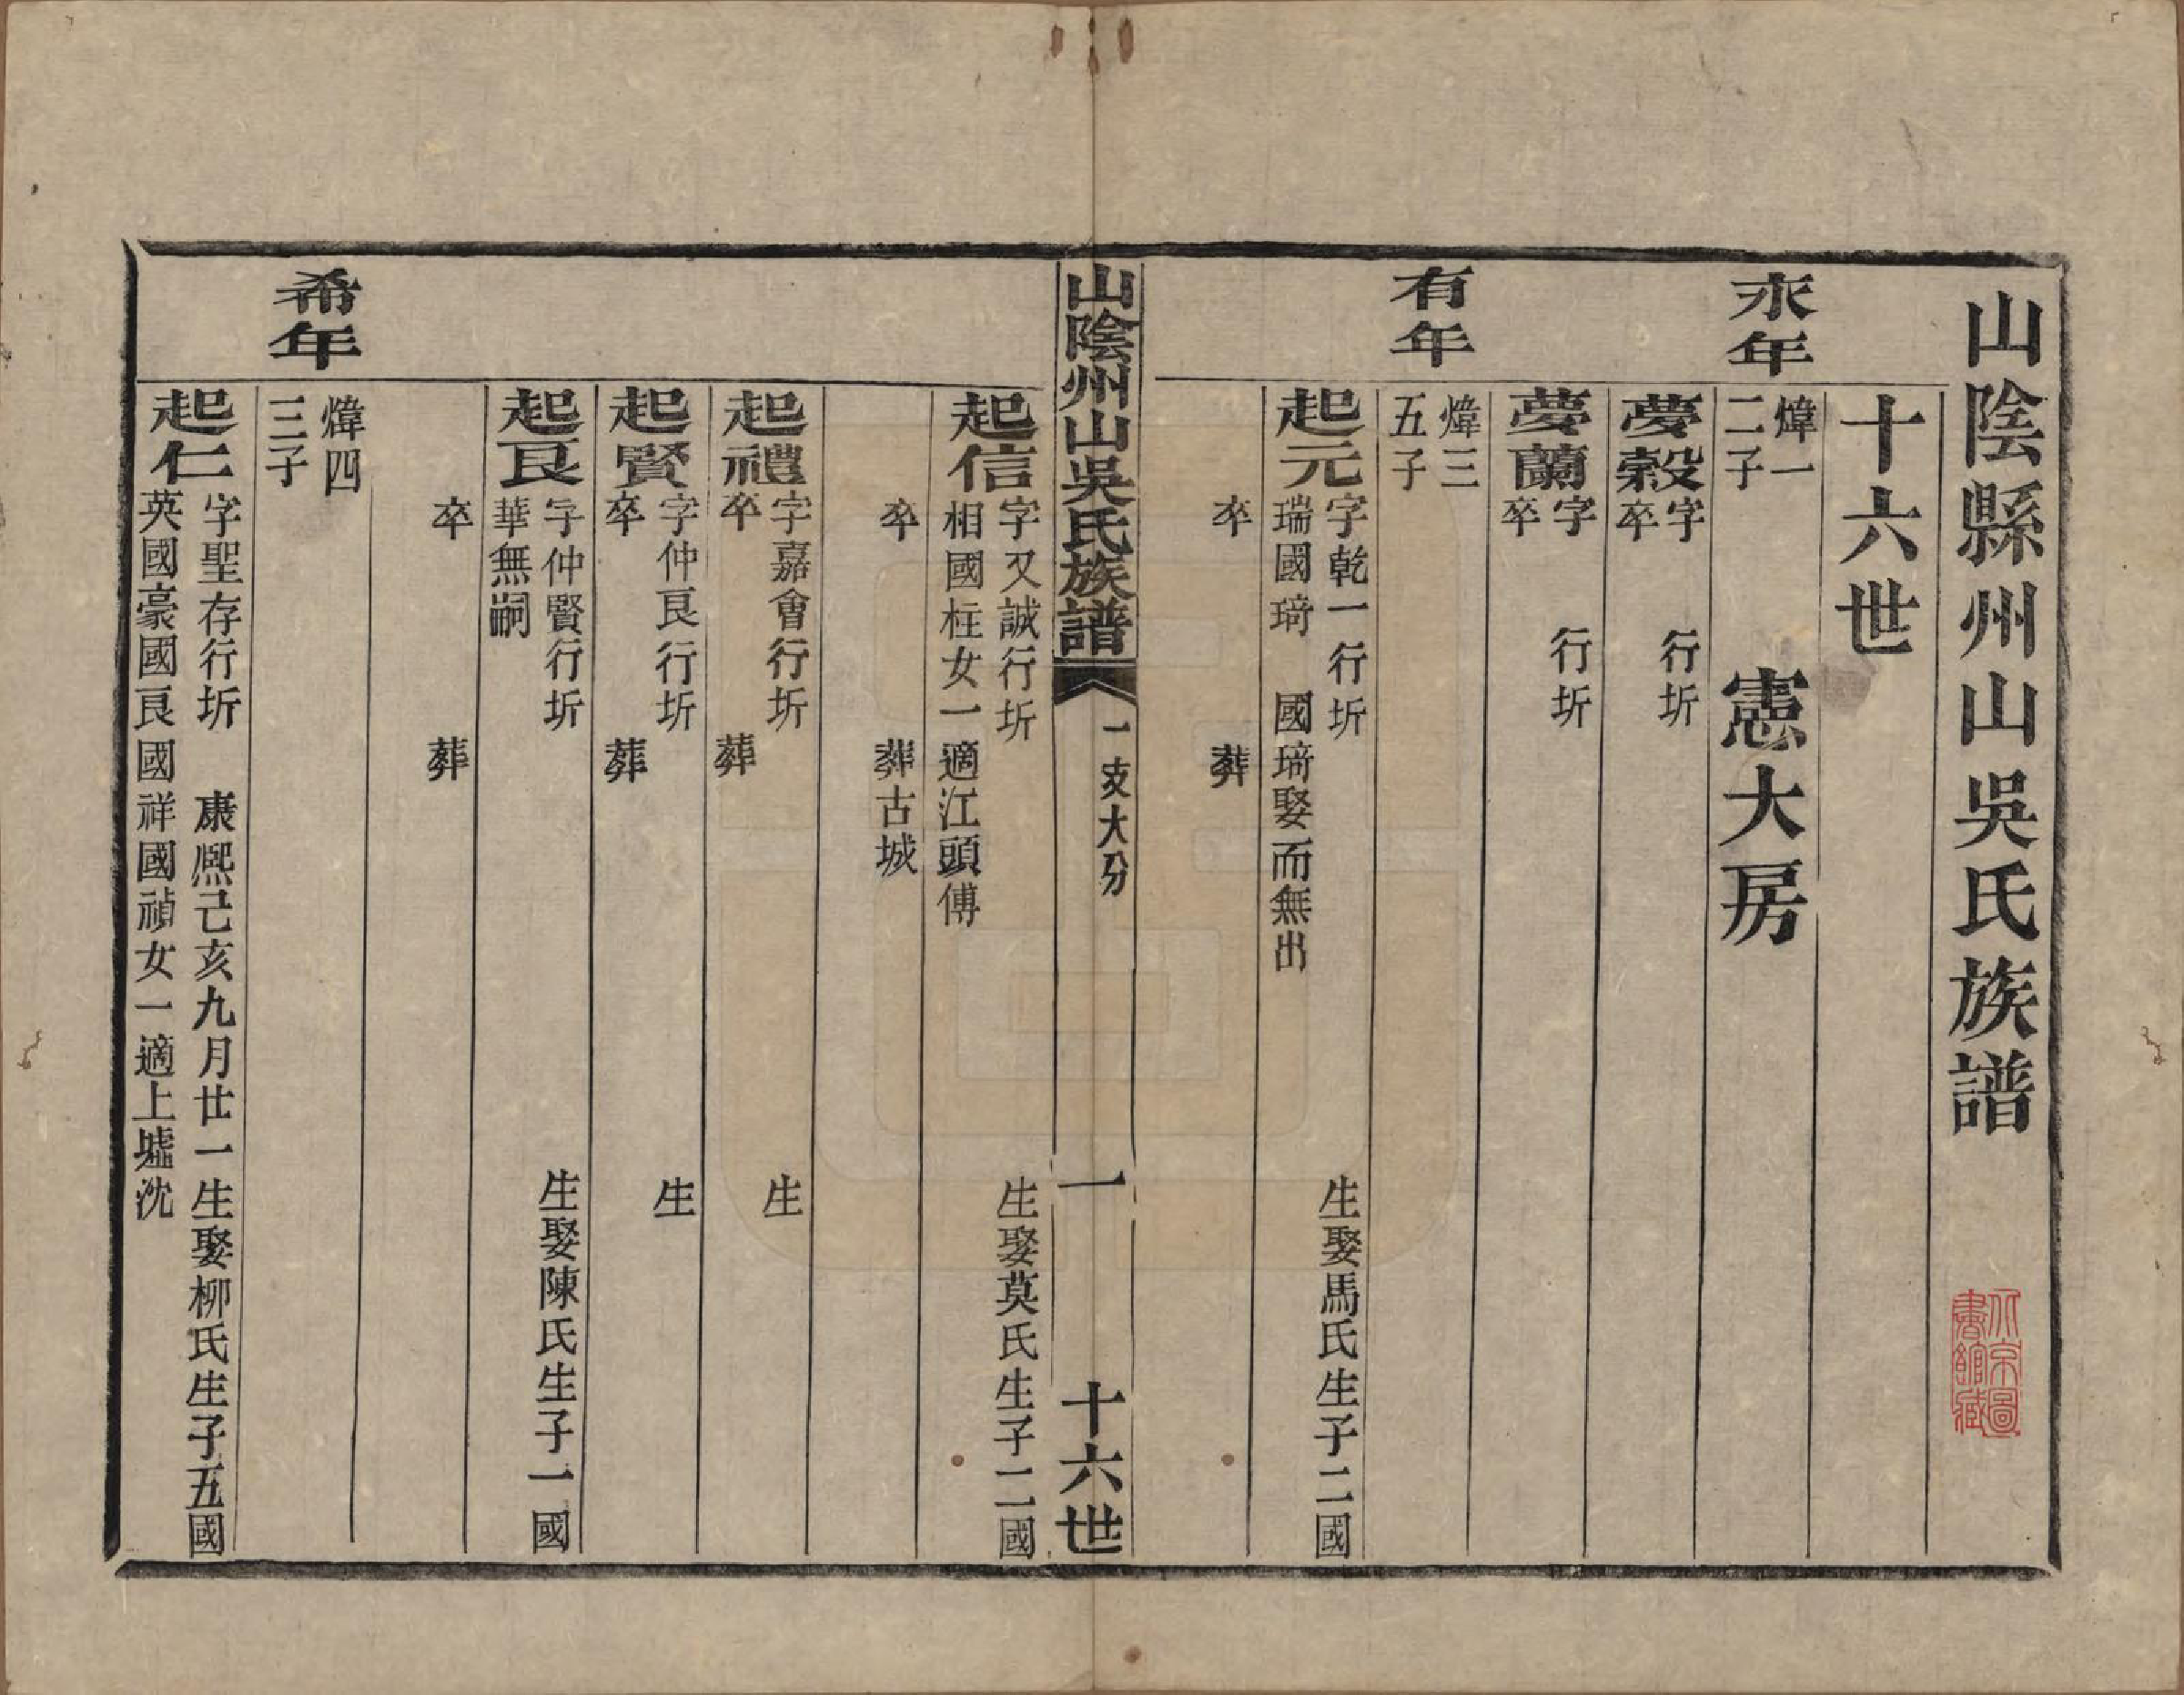 山陰縣州山吳氏族譜
十六世
憲大房
永年
煒一
二子
夢榖
字 行圻
卒
夢蘭
字 行圻
卒
有年
煒三
五子
起元
字乾一行圻 生娶馬氏生子二國
瑞國琦 國琦娶而無出
卒 葬
山陰州山吳氏族譜 一支大分 一 十六世
起信
字又誠行圻 生娶莫氏生子二國
相國柱女一適江頭傅
卒 葬古城
起禮
字嘉會行圻 生
卒 葬
起賢
字仲良行圻 生
卒 葬
起良
字仲賢行圻 生娶陳氏生子一國
華無嗣
卒 葬
希年
煒四
三子
起仁
字聖存行圻 康熙己亥九月廿一生娶柳氏生子五國
英國豪國良國祥國禎女一適上墟沈
北京圖
書館藏